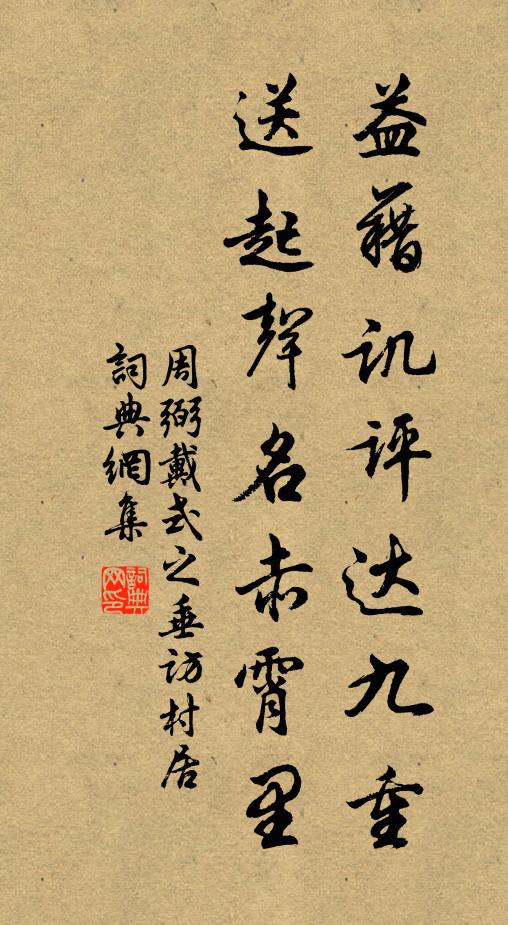 益藉讥评达九重
送起聲名赤霄里
周弼戴式之垂訪村居
詞典網集
詞典网印